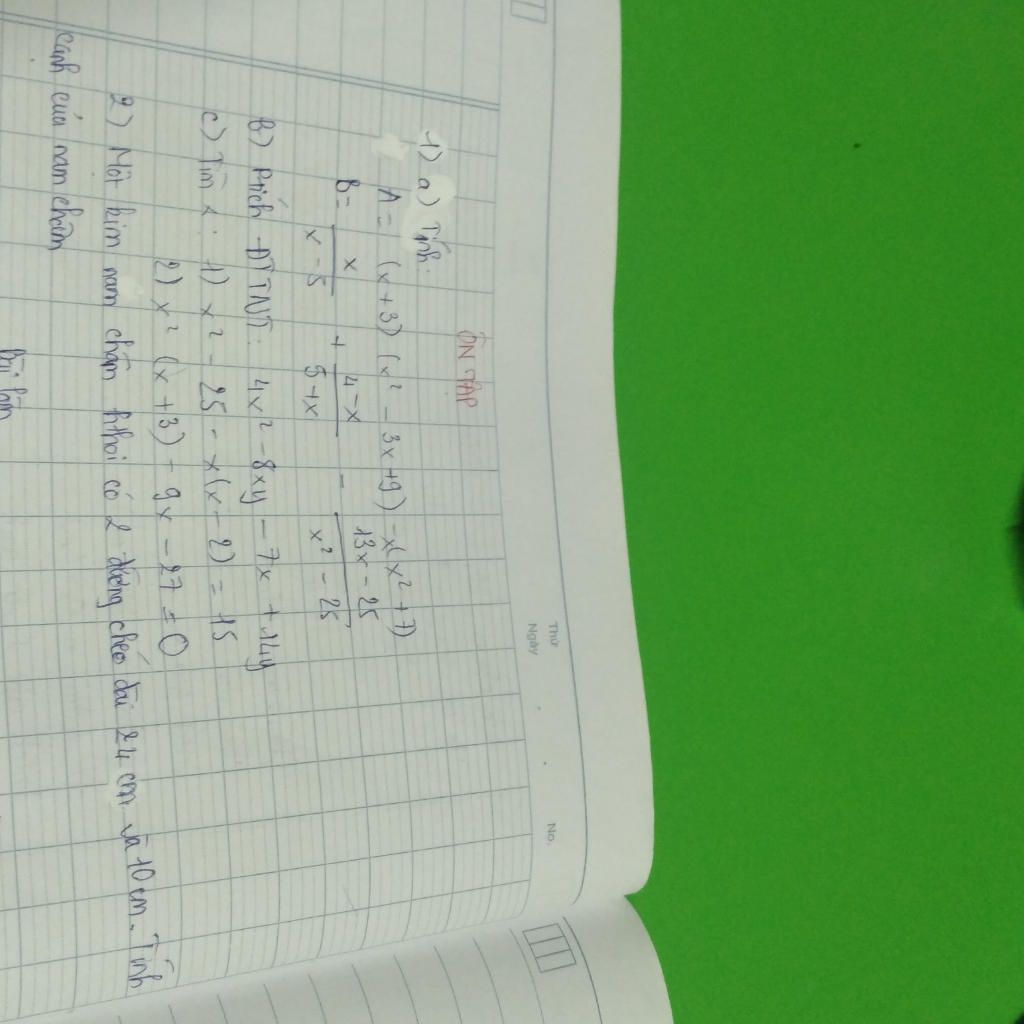 Thứ
Ngày
No.
ÔN TẬP
1) a) Tính:
A = (x+3) (x² - 3x+9) - x(x² + 7)
B = x/(x - 5) + (4-x)/(5+x) - (13x - 25)/(x² - 25)
b) Ptích ĐTTNT: 4x² - 8xy - 7x + 14y
c) Tìm x: 1) x² - 25 - x(x - 2) = 15
2) x² (x +3) + 9x - 27 = 0
2) Một kim nam châm hthoi có 2 đường chéo dài 24 cm và 10 cm. Tính
cạnh của nam châm
Bài làm